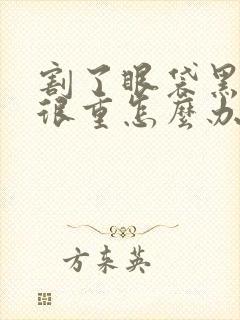 割了眼袋黑
很重怎麼办
方东英